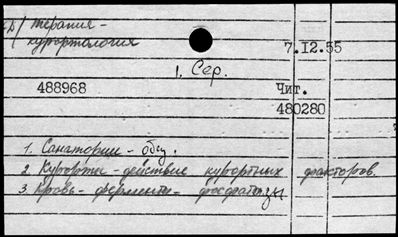 терапия-
курортология
7.12.55
1. Сер.
488968
Чит.
480280
1. Санатории - обсл.
2. Курорты - действие курортных факторов.
3. Кровь - ферменты - фосфатазы